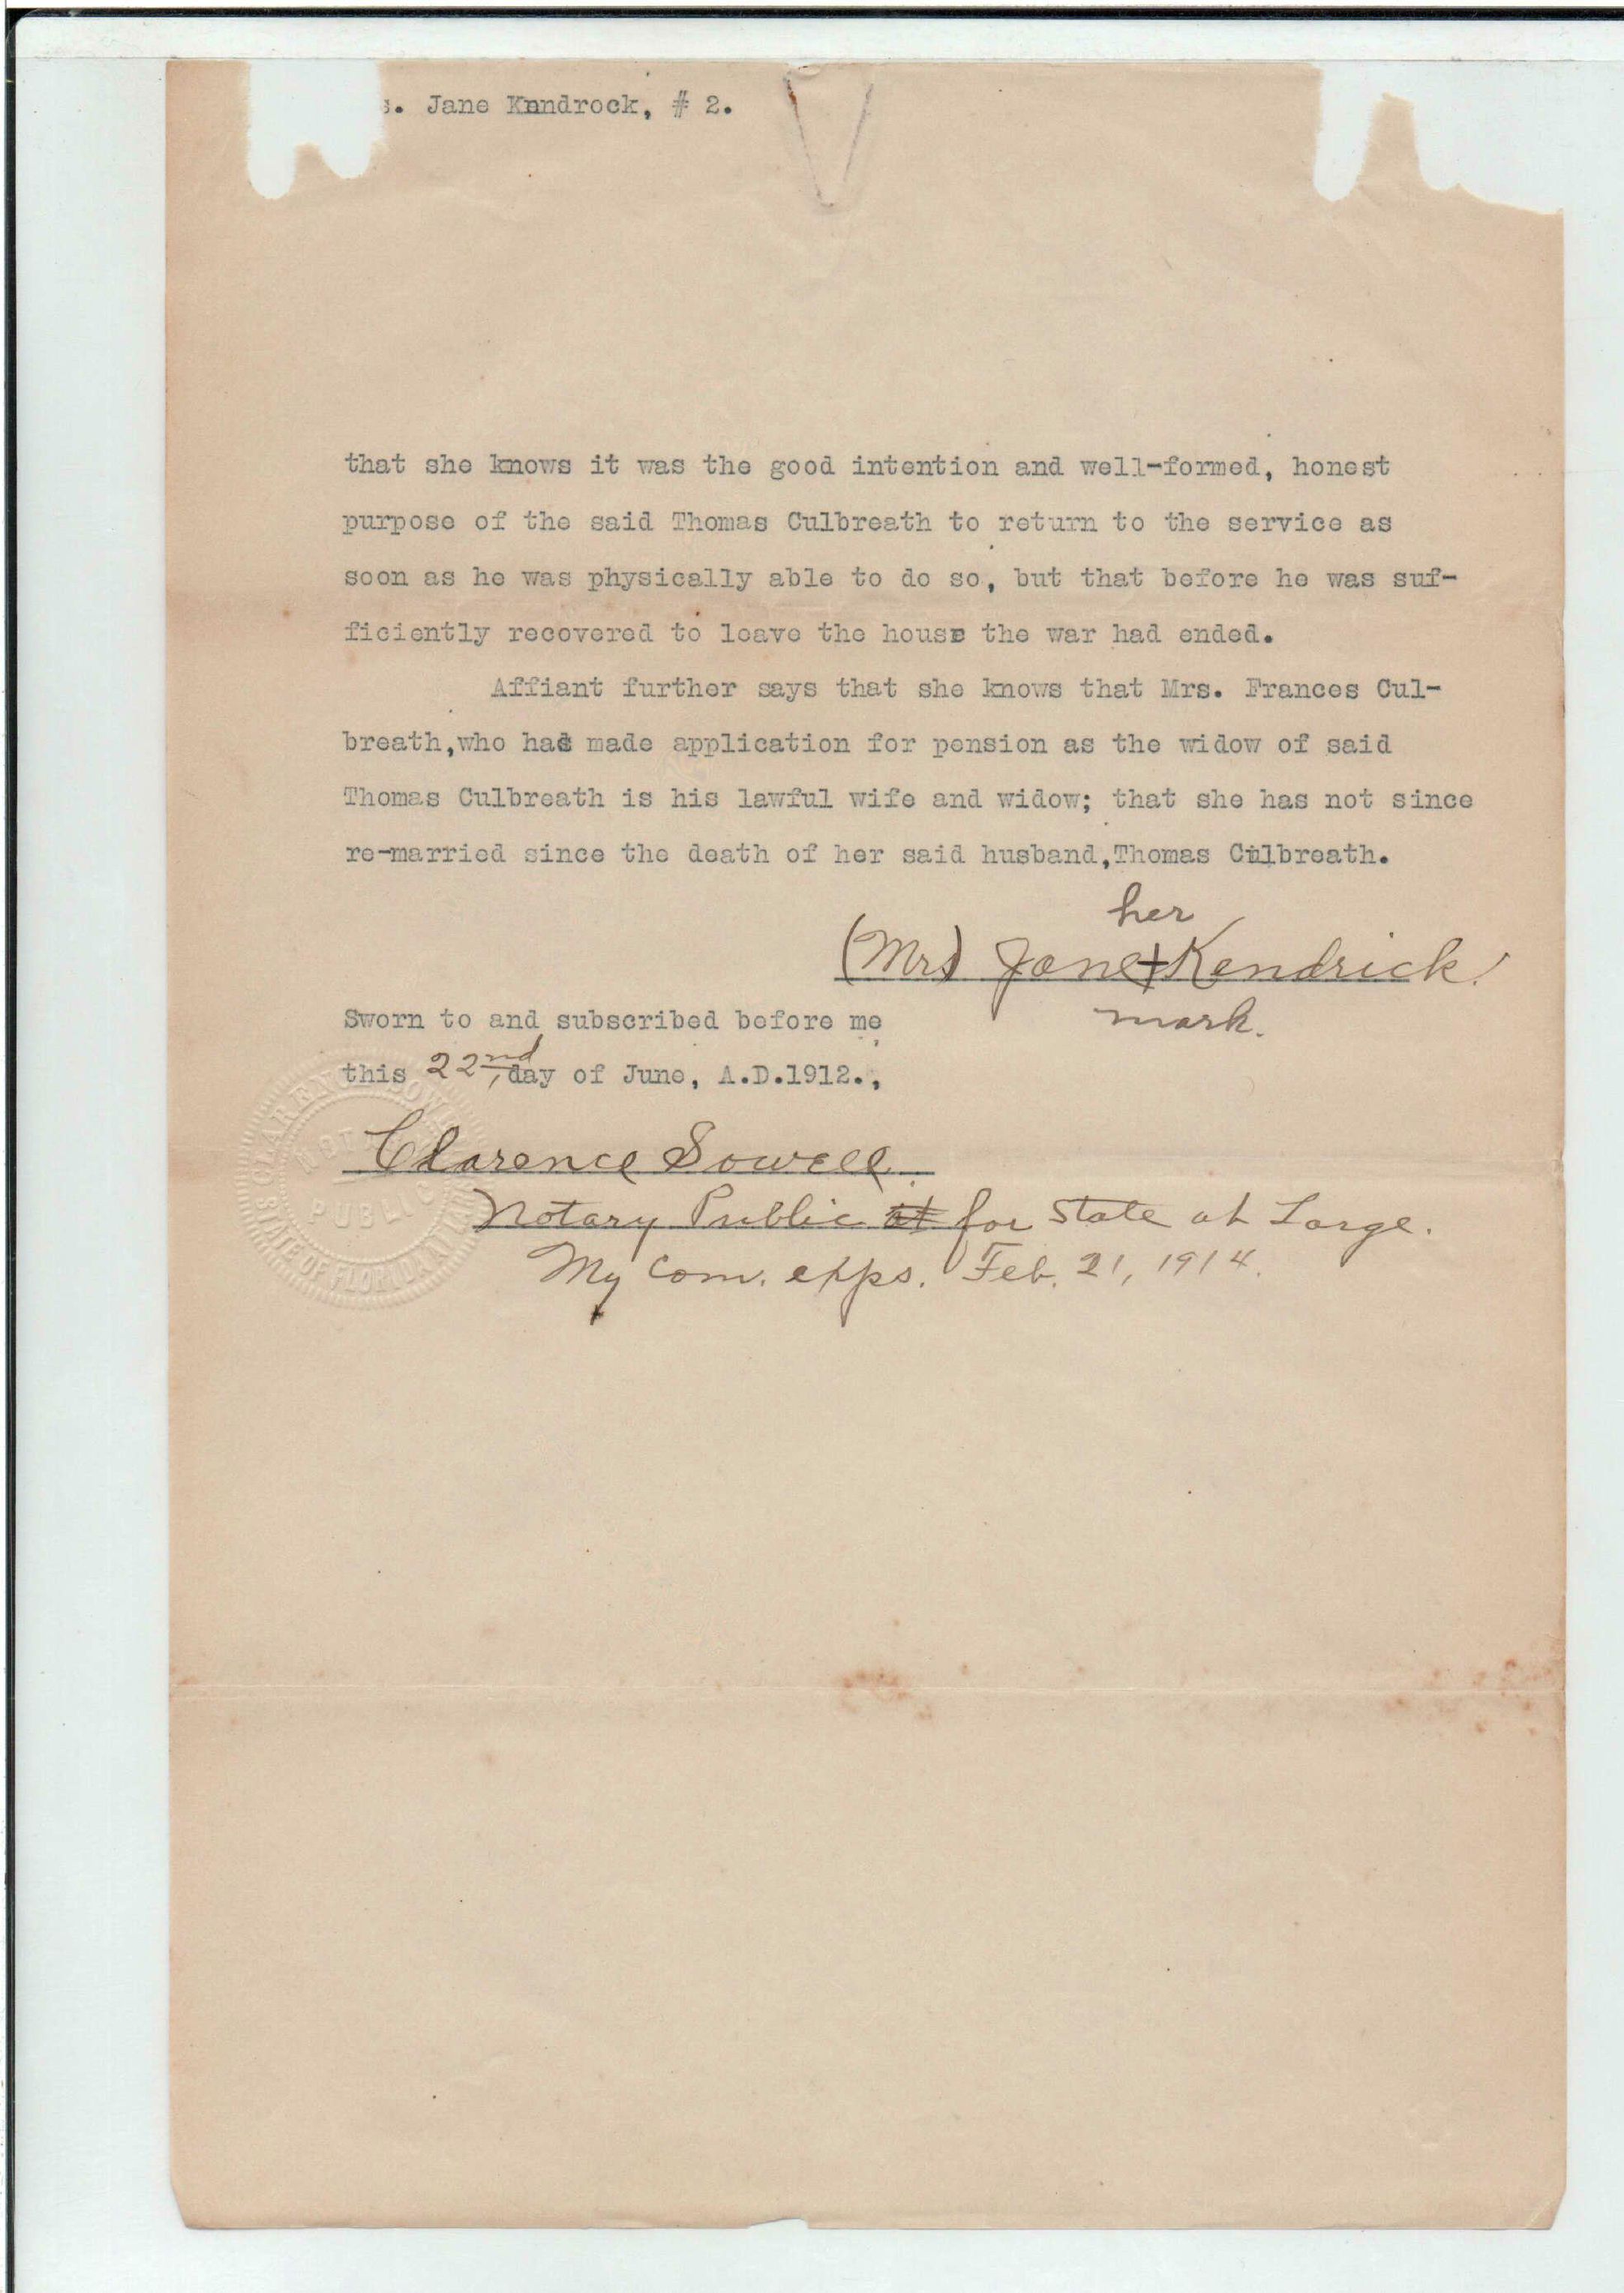 s. Jane Knndrock, # 2.
that she knows it was the good intention and well-formed, honest
purpose of the said Thomas Culbreath to return to the service as
soon as he was physically able to do so, but that before he was suf-
ficiently recovered to leave the house the war had ended.
Affiant further says that she knows that Mrs. Frances Cul-
breath,who has made application for pension as the widow of said
Thomas Culbreath is his lawful wife and widow; that she has not since
re-married since the death of her said husband,Thomas Culbreath.
her
(Mrs) Jane + Kendrick.
mark.
Sworn to and subscribed before me
this 22nd, day of June, A.D.1912.,
Clarence Sowell.
Notary Public at for State at Large.
My Com. exps. Feb. 21, 1914.
CLARENCE SOWELL
NOTARY
PUBLIC
STATE OF FLORIDA AT